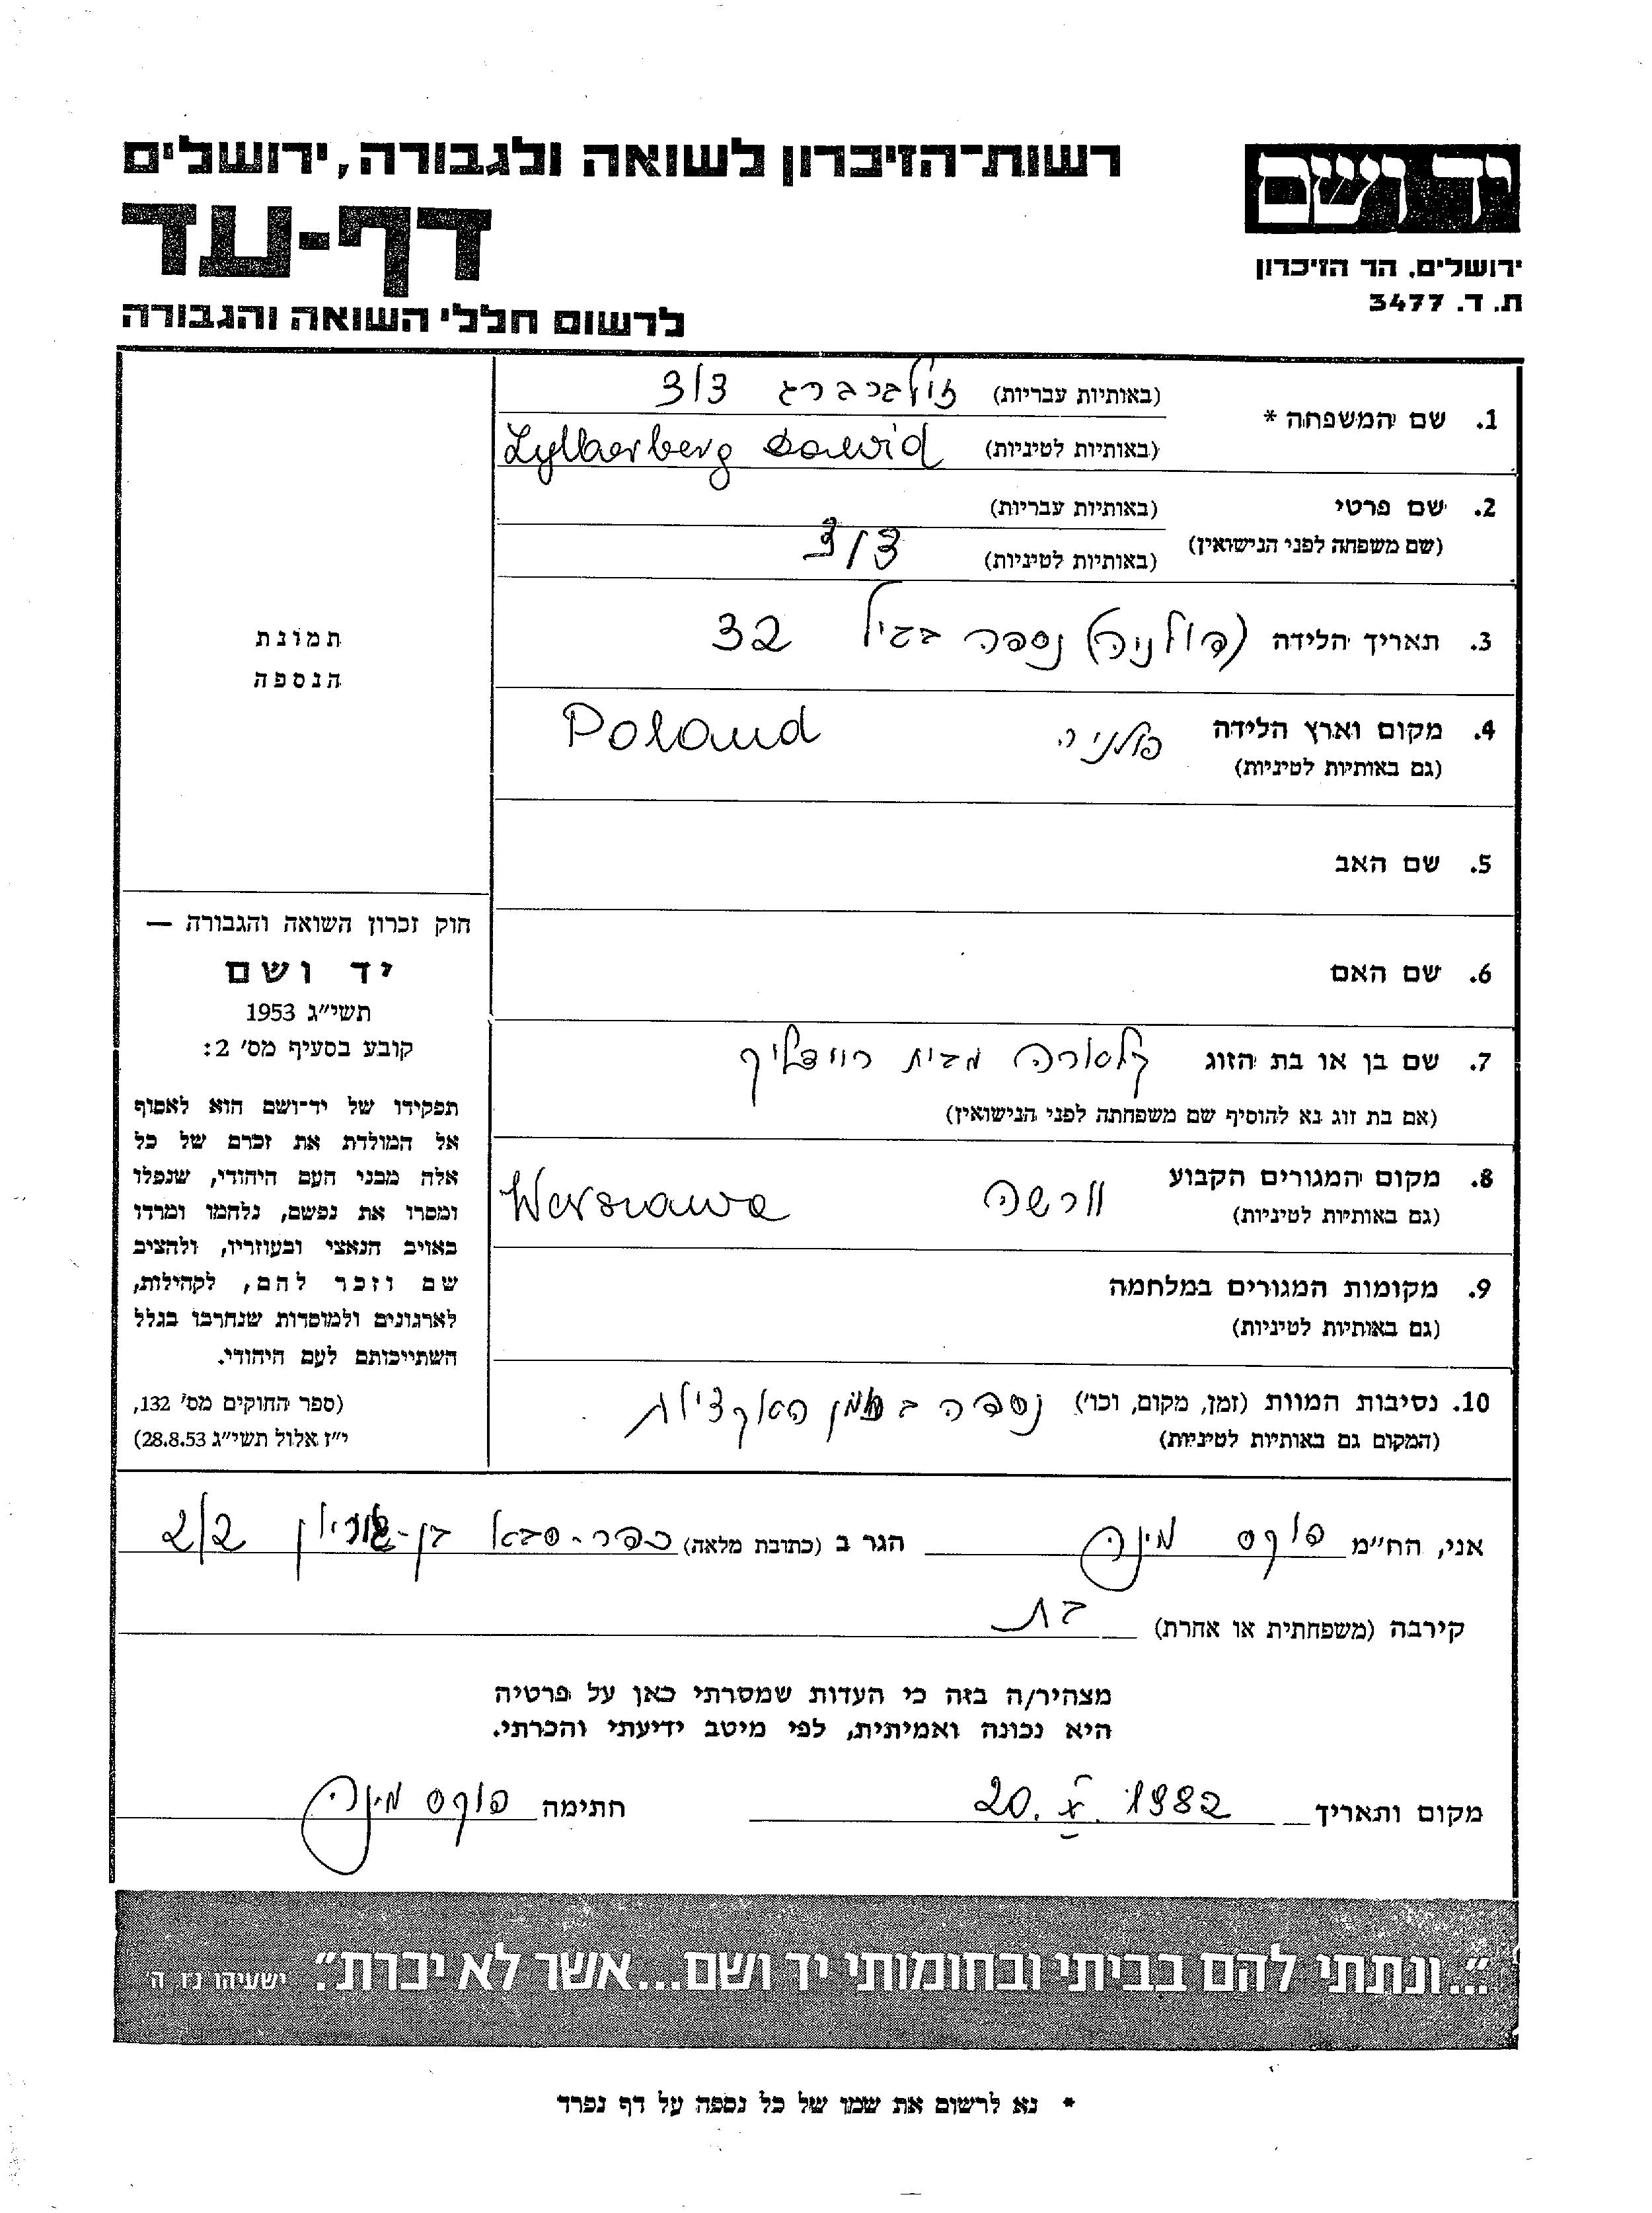 יד ושם
ירושלים. הר הזיכרון
ת. ד. 3477
רשות־הזיכרון לשואה ולגבורה, ירושלים
דף-עד
לרשום חללי השואה והגבורה
1. שם המשפחה * (באותיות עבריות) זילברברג דוד
(באותיות לטיניות) Zylberberg Dawid
2. שם פרטי (באותיות עבריות)
(שם משפחה לפני הנישואין) (באותיות לטיניות) דוד
3. תאריך הלידה (פולניה) נספה בגיל 32
4. מקום וארץ הלידה פולניה Poland
(גם באותיות לטיניות)
5. שם האב
6. שם האם
7. שם בן או בת הזוג קלארה מבית
(אם בת זוג נא להוסיף שם משפחתה לפני הנישואין)
8. מקום המגורים הקבוע וורשה Warszawa
(גם באותיות לטיניות)
9. מקומות המגורים במלחמה
(גם באותיות לטיניות)
10. נסיבות המוות (זמן, מקום, וכו') נספה בזמן האקציות
(המקום גם באותיות לטיניות)
תמונת
הנספה
חוק זכרון השואה והגבורה —
יד ושם
תשי״ג 1953
קובע בסעיף מס' 2:
תפקידו של יד־ושם הוא לאסוף
אל המולדת את זכרם של כל
אלה מבני העם היהודי, שנפלו
ומסרו את נפשם, נלחמו ומרדו
באויב הנאצי ובעוזריו, ולהציב
שם וזכר להם, לקהילות,
לארגונים ולמוסדות שנחרבו בגלל
השתייכותם לעם היהודי.
(ספר החוקים מס' 132,
י״ז אלול תשי״ג 28.8.53)
אני, הח״מ פוקס מינה הגר ב (כתובת מלאה) כפר-סבא בן-גוריון 2/2
קירבה (משפחתית או אחרת) בת
מצהיר/ה בזה כי העדות שמסרתי כאן על פרטיה
היא נכונה ואמיתית, לפי מיטב ידיעתי והכרתי.
מקום ותאריך 20. X. 1982 חתימה פוקס מינה
״...ונתתי להם בביתי ובחומותי יד ושם...אשר לא יכרת״. ישעיהו נז, ה'
* נא לרשום את שמו של כל נספה על דף נפרד